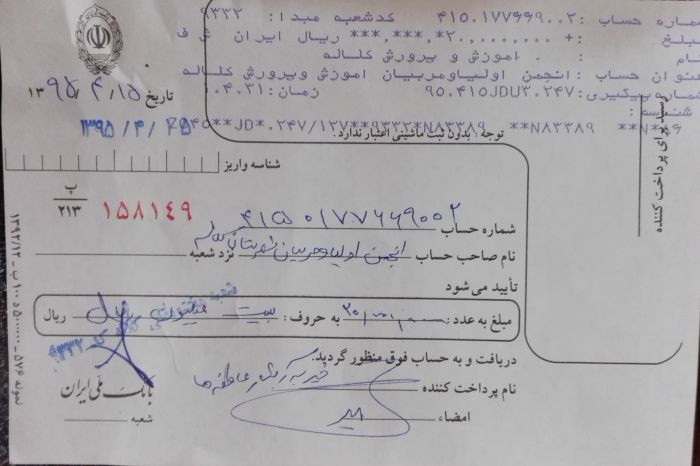 شماره حساب :۴۱۵۰۱۷۷۶۶۹۰۰۲ کدشعبه مبدا: ۹۳۳۲
مبلغ :+ ***,***,*۲۰,۰۰۰,۰۰۰ ریال ایران ش ف
نام : . اموزش و پرورش کلاله
عنوان حساب : انجمن اولیاومربیان اموزش وپرورش کلاله
شماره پیگیری:۹۵.۴۱۵JDU۳.۲۴۷ زمان:۱۰.۴.۳۱
شناسه:
**JD*.۲۴۷/۱۲۷**۹۳۳۲*N۸۳۳۸۹ **N۸۳۳۸۹ **N*
توجه : بدون ثبت ماشینی اعتبار ندارد.
تاریخ ۱۳۹۵/۴/۱۵
۱۳۹۵/۴/
شناسه واریز
سند برای پرداخت کننده
ب
۲۱۳
۱۵۸۱۴۹
شماره حساب ۴۱۵۰۱۷۷۶۶۹۰۰۲
نام صاحب حساب انجمن اولیا و مربیان شهرستان کلاله نزد شعبه
تأیید می‌شود
مبلغ به عدد: ۲۰,۰۰۰,۰۰۰ به حروف: بیست میلیون ریال ریال
۹۳۳۲
دریافت و به حساب فوق منظور گردید.
نام پرداخت کننده
امضاء
بانک ملی ایران
شعبه
نمونه ۵۷۴